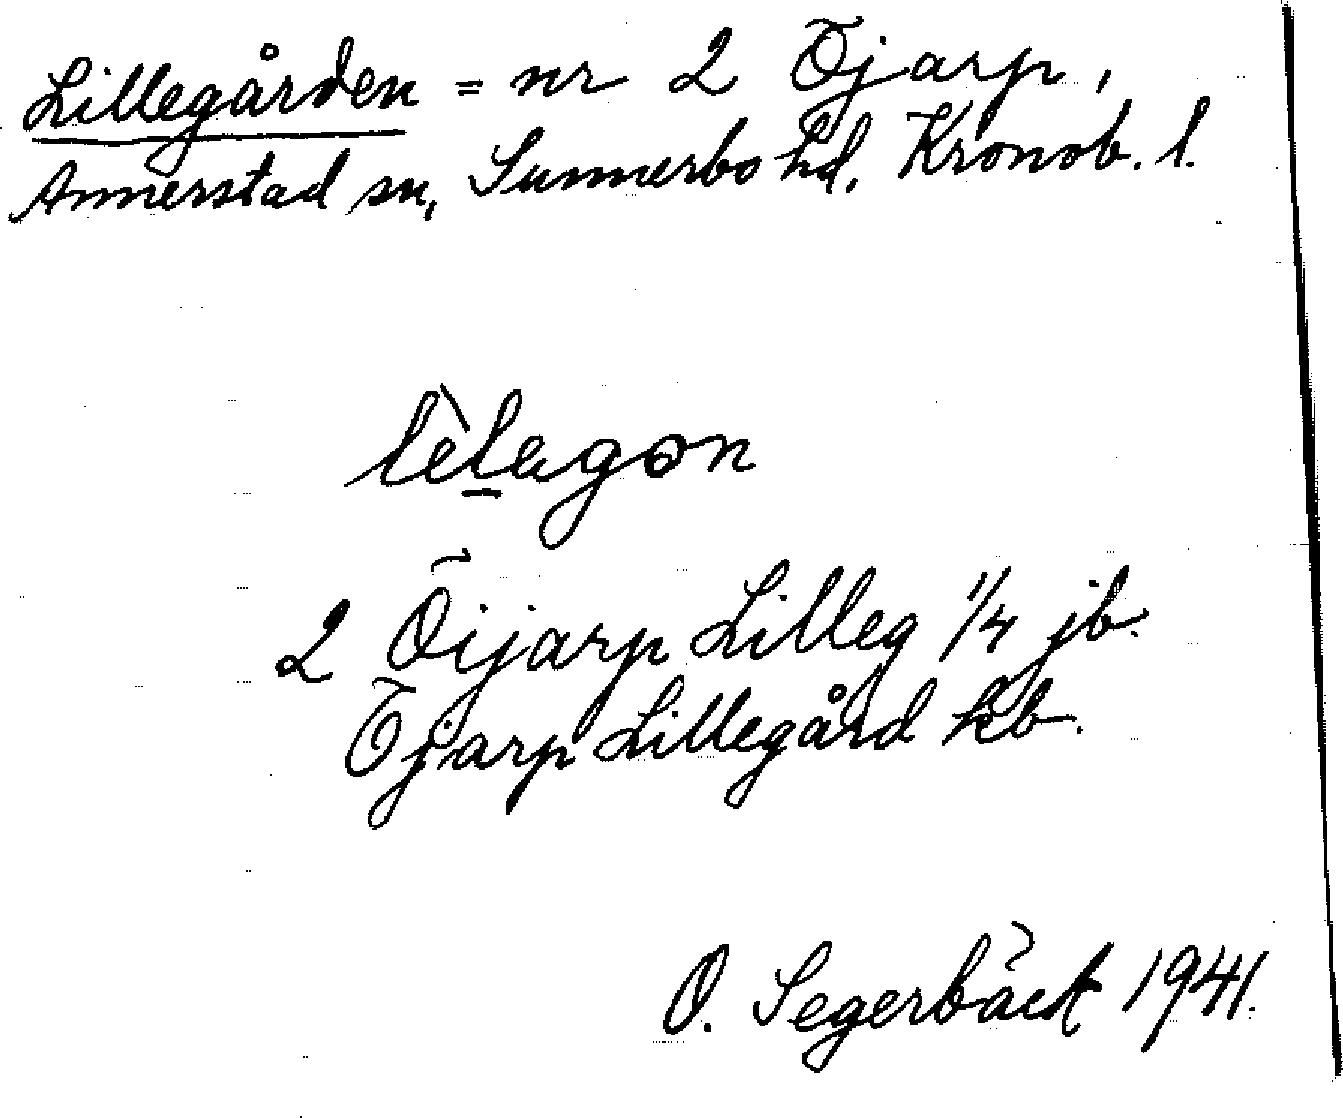 Lillegården = nr 2 Öjarp,
Annerstad sn, Sunnerbo hd, Kronob. l.
lèlegon
2 Öijarp Lilleg 1/4 jb.
Öjarp Lillegård kb.
O. Segerbäck 1941.